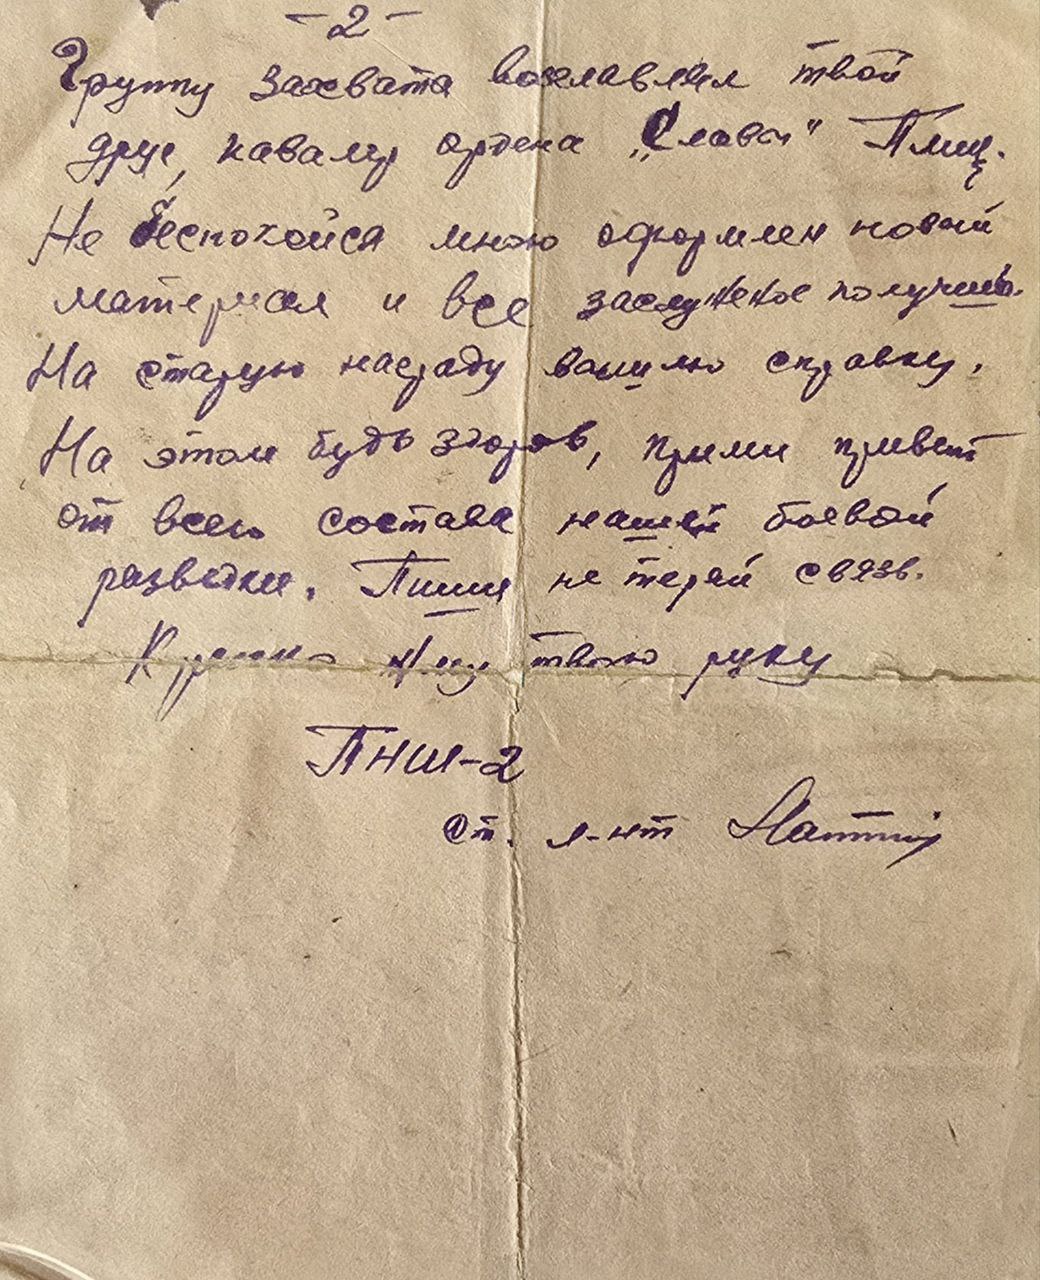 -2-
Группу захвата возглавлял твой
друг, кавалер ордена „Славы" Плищ.
Не беспокойся мною оформлен новый
материал и все заслуженое получишь.
На старую награду вышлю справку.
На этом будь здоров, прими привет
от всего состава нашей боевой
разведки. Пиши не теряй связь.
Крепко жму твою руку
ПНШ-2
Ст. л-нт